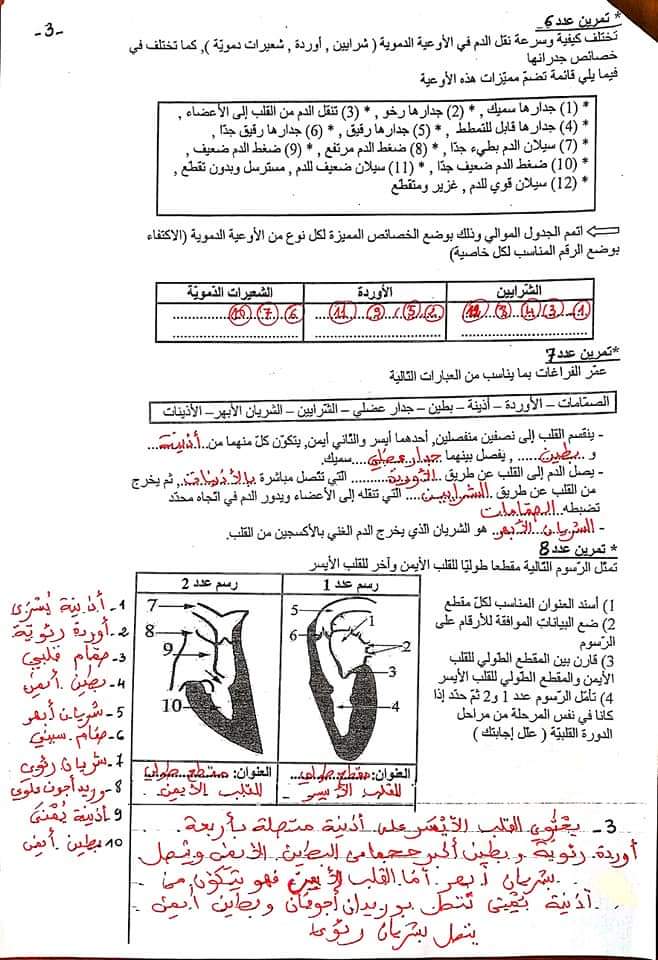 -3-
* تمرين عدد 6
تختلف كيفية وسرعة نقل الدم في الأوعية الدموية ( شرايين , أوردة , شعيرات دمويّة ), كما تختلف في
خصائص جدرانها
فيما يلي قائمة تضمّ مميّزات هذه الأوعية
* (1) جدارها سميك , * (2) جدارها رخو , * (3) تنقل الدم من القلب إلى الأعضاء ,
* (4) جدارها قابل للتمطط , * (5) جدارها رقيق , * (6) جدارها رقيق جدّا ,
* (7) سيلان الدم بطيء جدّا , * (8) ضغط الدم مرتفع , * (9) ضغط الدم ضعيف ,
* (10) ضغط الدم ضعيف جدّا , * (11) سيلان ضعيف للدم , مسترسل وبدون تقطّع ,
* (12) سيلان قوي للدم , غزير ومتقطّع
اتمم الجدول الموالي وذلك بوضع الخصائص المميزة لكل نوع من الأوعية الدموية (الاكتفاء
بوضع الرقم المناسب لكل خاصية)
الشّرايين الأوردة الشعيرات الدّمويّة
1 3 4 8 12 2 5 9 11 6 7 10
*تمرين عدد 7
عمّر الفراغات بما يناسب من العبارات التالية
الصمّامات – الأوردة – أذينة – بطين – جدار عضلي – الشّرايين – الشريان الأبهر – الأذينات
- ينقسم القلب إلى نصفين منفصلين, أحدهما أيسر والثاني أيمن, يتكوّن كلّ منهما من أذينة
و بطين , يفصل بينهما جدار عضلي سميك.
- يصل الدم إلى القلب عن طريق الأوردة التي تتّصل مباشرة بالأذينات , ثم يخرج
من القلب عن طريق الشرايين التي تنقله إلى الأعضاء ويدور الدم في اتجاه محدّد
تضبطه الصمّامات
- الشريان الأبهر هو الشريان الذي يخرج الدم الغني بالأكسجين من القلب.
* تمرين عدد 8
تمثل الرّسوم التّالية مقطعا طوليّا للقلب الأيمن وآخر للقلب الأيسر
1) أسند العنوان المناسب لكلّ مقطع
2) ضع البيانات الموافقة للأرقام على
الرّسوم
3) قارن بين المقطع الطولي للقلب
الأيمن والمقطع الطولي للقلب الأيسر
4) تأمّل الرّسوم عدد 1 و2 ثمّ حدّد إذا
كانا في نفس المرحلة من مراحل
الدورة القلبيّة ( علل إجابتك )
رسم عدد 1
1
2
3
4
5
6
العنوان: مقطع طولي
للقلب الأيسر
رسم عدد 2
7
8
9
10
العنوان: مقطع طولي
للقلب الأيمن
1- أذينة يسرى
2- أوردة رئويّة
3- صمّام قلبي
4- بطين أيمن
5- شريان أبهر
6- صمّام سيني
7- شريان رئوي
8- وريد أجوف علوي
9 أذينة يمنى
10 بطين أيمن
3- يحتوي القلب الأيسر على أذينة متصلة بأربعة
أوردة رئوية و بطين أكبر حجما من البطين الأيمن ويتصل
بشريان أبهر أمّا القلب الأيمن فهو يتكوّن من
أذينة يمنى تتصل بوريدان أجوفان و بطين أيمن
يتصل بشريان رئوي